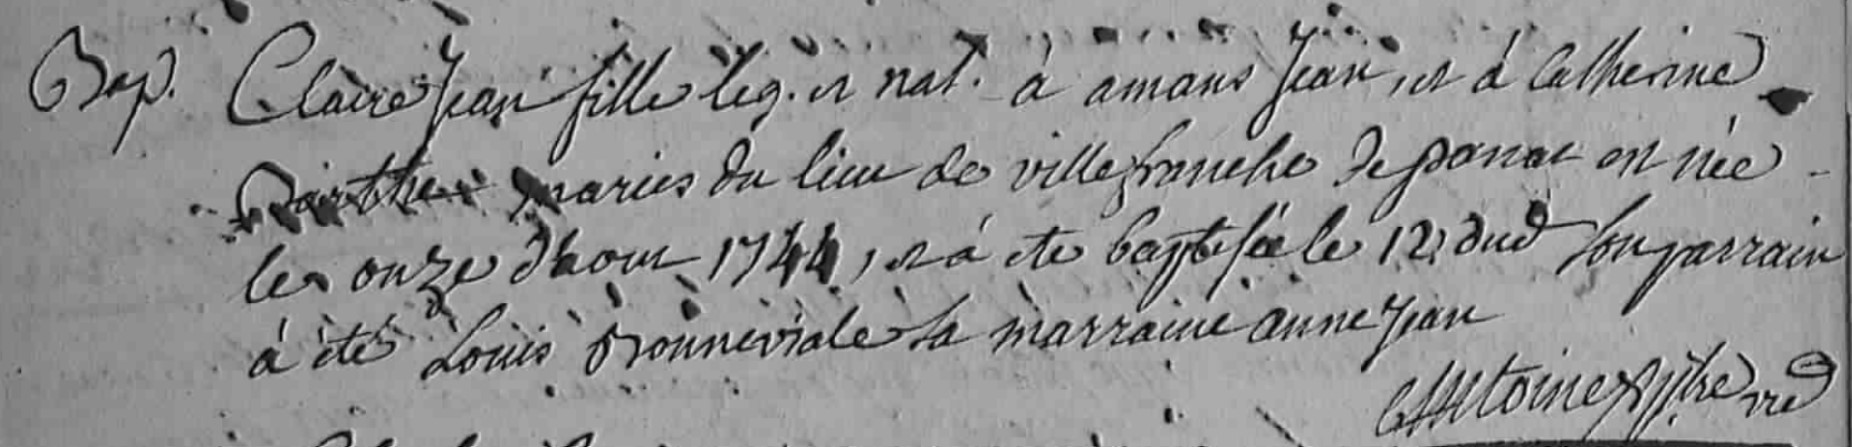 Bap. Claire Jean fille leg. et nat. à amans Jean, et à Catherine
maries du lieu de villefranche de panat est née
le onze dhout 1744, et à ete baptisée le 12 dud son parrain
à été Louis Bonneviale la marraine anne Jean
Antoine